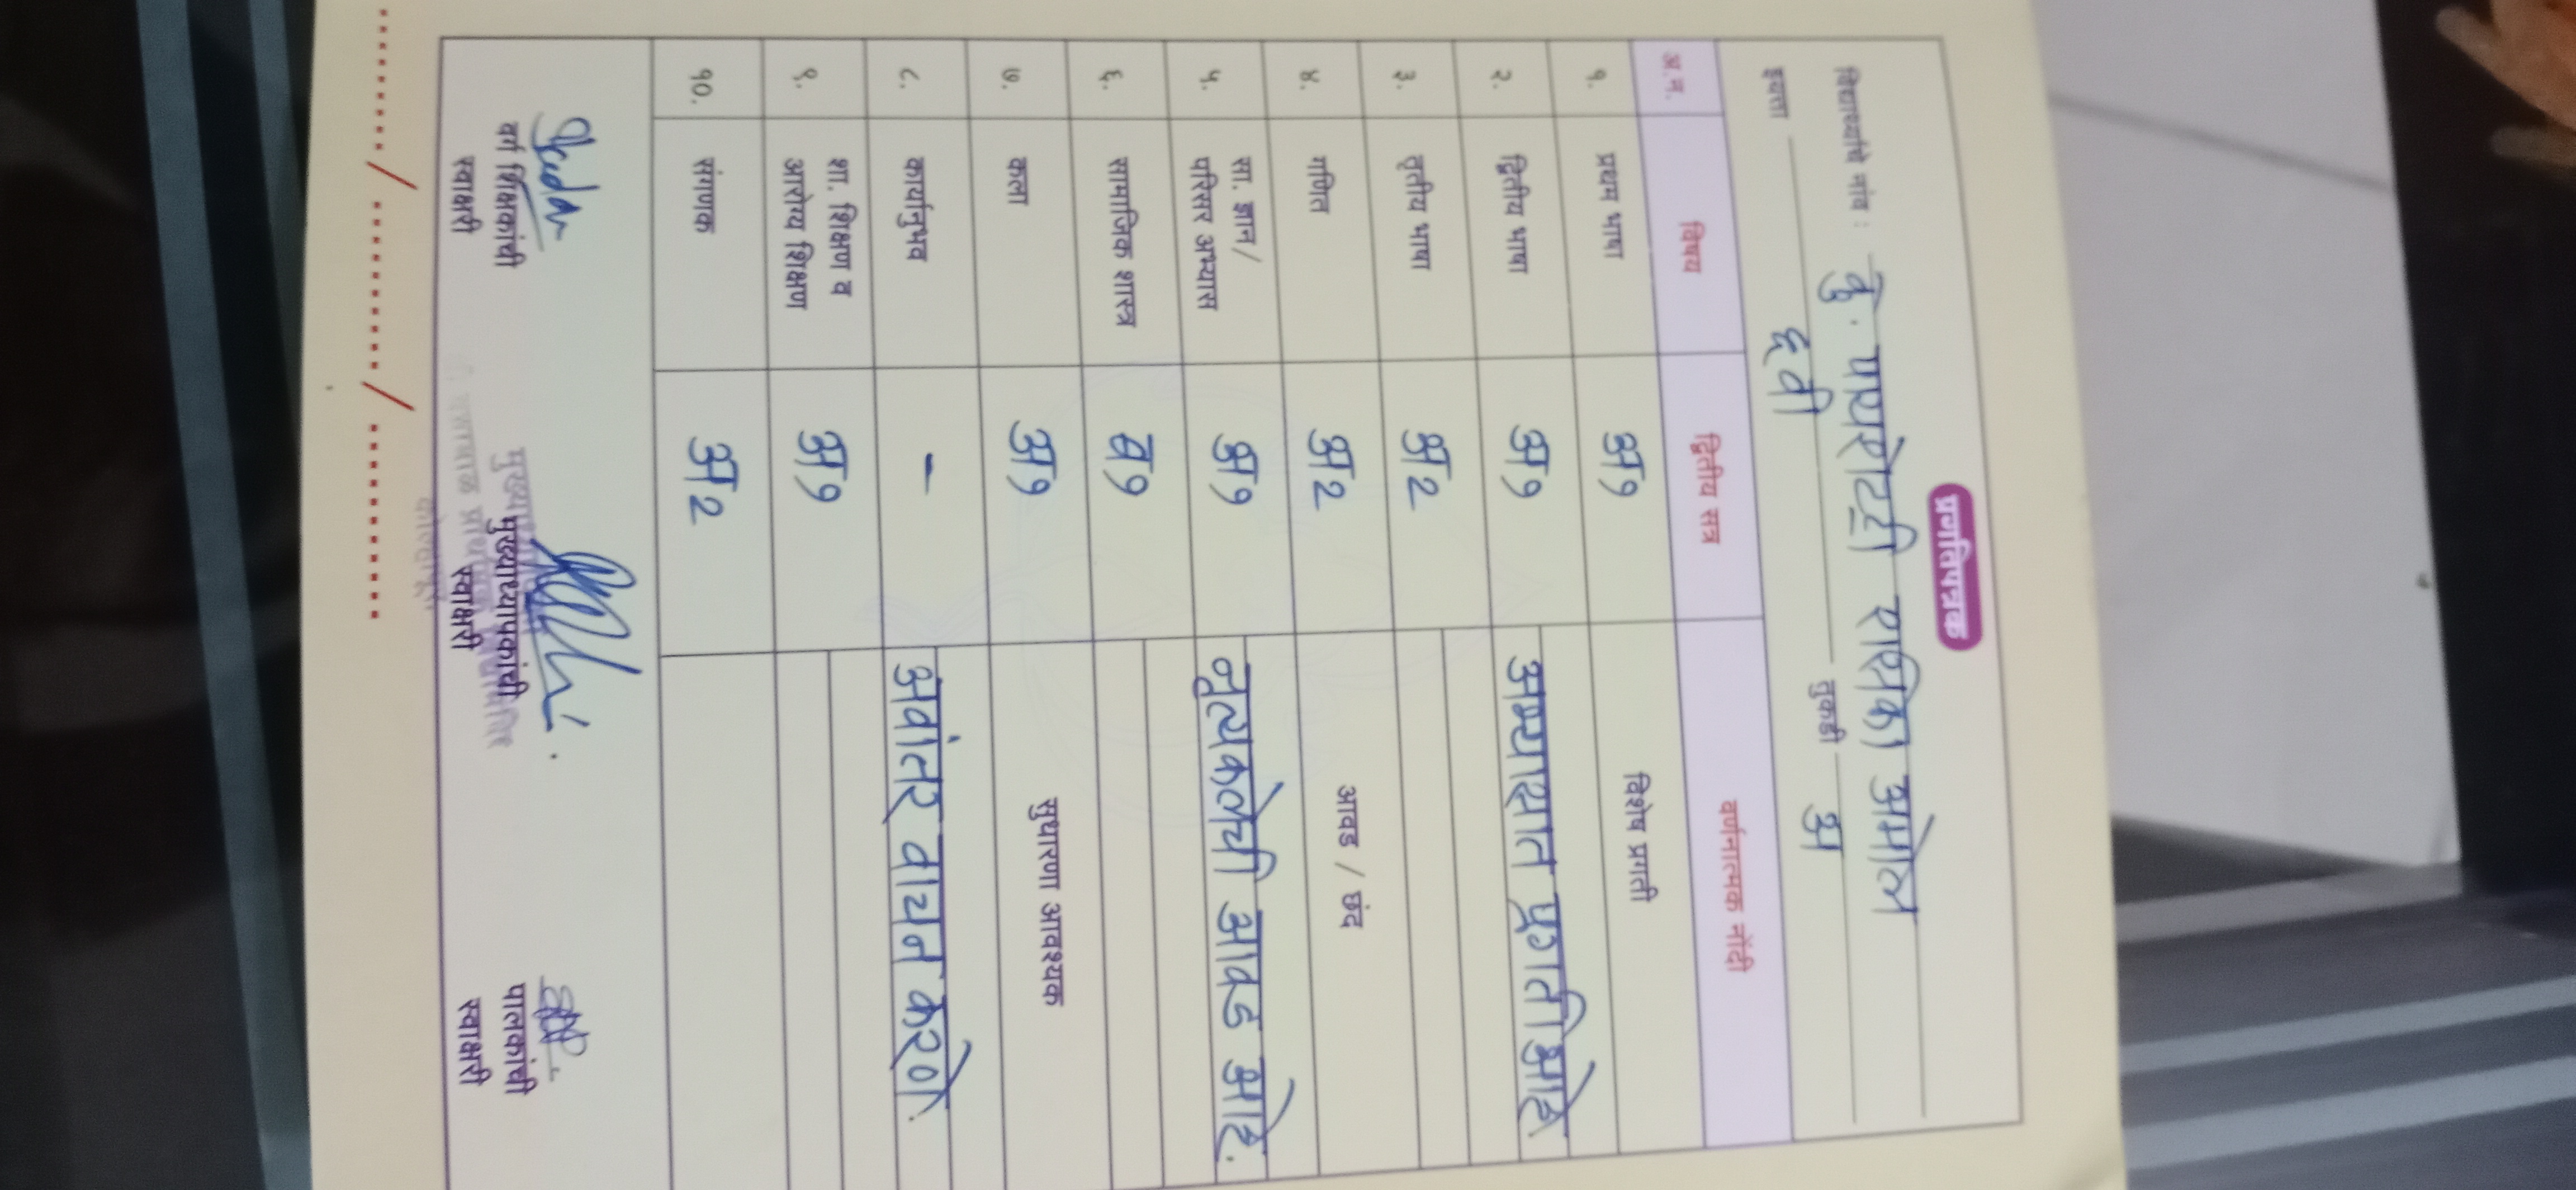 प्रगतिपत्रक
विद्यार्थ्याचे नांव : कु. पाथरोटी रसिका अमोल
इयत्ता ६ वी तुकडी अ
अ.नं. विषय द्वितीय सत्र वर्णनात्मक नोंदी
१. प्रथम भाषा अ१ विशेष प्रगती
२. द्वितीय भाषा अ१ अभ्यासात प्रगती आहे.
३. तृतीय भाषा अ२
४. गणित अ२ आवड / छंद
५. सा. ज्ञान/ परिसर अभ्यास अ१ नृत्यकलेची आवड आहे.
६. सामाजिक शास्त्र ब१
७. कला अ१ सुधारणा आवश्यक
८. कार्यानुभव - अवांतर वाचन करणे.
९. शा. शिक्षण व आरोग्य शिक्षण अ१
१०. संगणक अ२
वर्ग शिक्षकांची स्वाक्षरी
मुख्याध्यापकांची स्वाक्षरी
पालकांची स्वाक्षरी